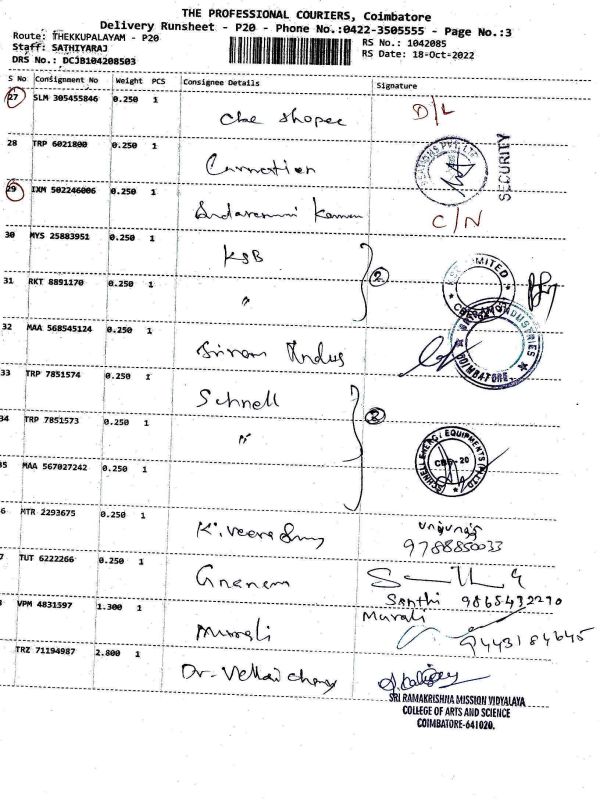 THE PROFESSIONAL COURIERS, Coimbatore
Delivery Runsheet - P20 - Phone No.:0422-3505555 - Page No.:3
Route: THEKKUPALAYAM - P20
Staff: SATHIYARAJ
DRS No.: DCJB104208503
RS No.: 1042085
RS Date: 18-Oct-2022
S No Consignment No Weight PCS Consignee Details Signature
27 SLM 305455846 0.250 1
D/L
28 TRP 6021800 0.250 1
Carnation
SECURITY
29 IXM 502246006 0.250 1
C/N
30 MYS 25883951 0.250 1
KSB
2
31 RKT 8891170 0.250 1
"
32 MAA 568545124 0.250 1
Sriram Indus
INDUSTRIES
COIMBATORE
33 TRP 7851574 0.250 1
Schnell
2
34 TRP 7851573 0.250 1
"
SCHNELL ENERGY EQUIPMENTS (P) LTD
CBE-20
35 MAA 567027242 0.250 1
6 MTR 2293675 0.250 1
9788850033
7 TUT 6222266 0.250 1
Gnanam
Santhi 9865432290
VPM 4831597 1.300 1
Murali
Murali
9443184645
TRZ 71194987 2.800 1
SRI RAMAKRISHNA MISSION VIDYALAYA
COLLEGE OF ARTS AND SCIENCE
COIMBATORE-641020.